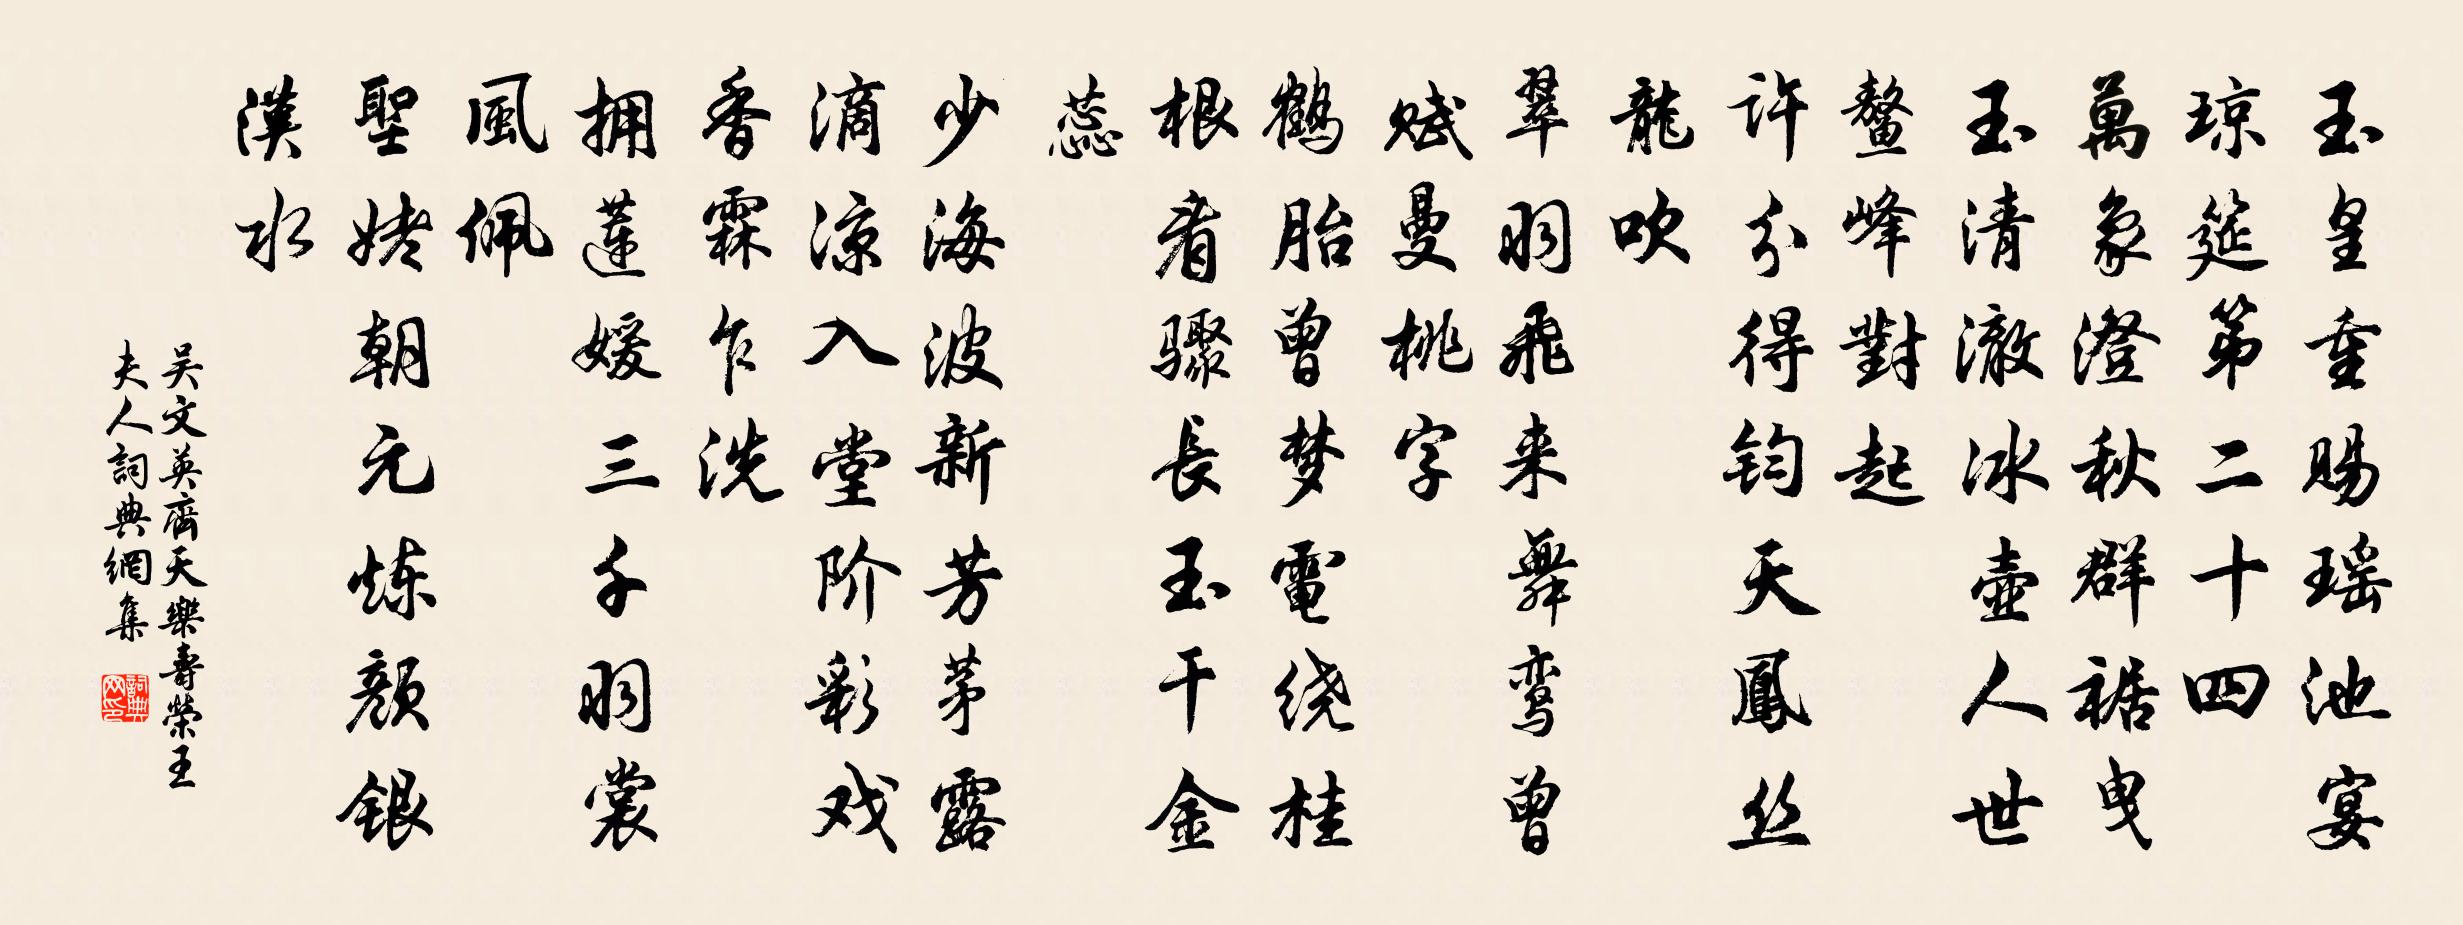 玉皇重賜瑶池宴
琼筵第二十四
萬象澄秋群裾曳
玉清澈冰壺人世
鳌峰對起
许分得钧天鳳丝
龍吹
翠羽飛来舞鸾曾
赋曼桃字
鶴胎曾梦電绕桂
根看骤長玉干金
蕊
少海波新芳茅露
滴凉入堂阶彩戏
香霖乍洗
拥蓮媛三千羽裳
風佩
聖姥朝元炼颜銀
漢水
吴文英齊天樂壽榮王
夫人詞典網集
詞典网印